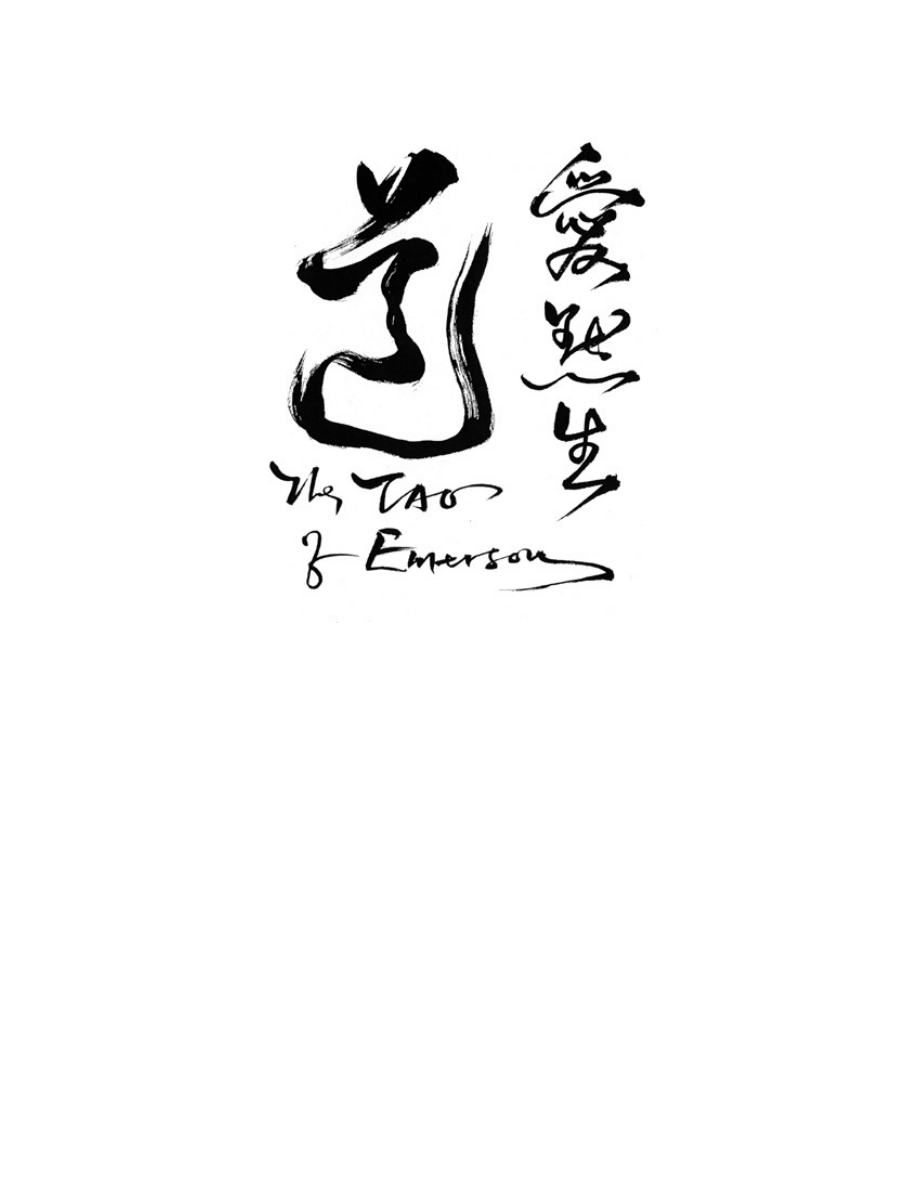 愛黙生
道
The TAO
of Emerson